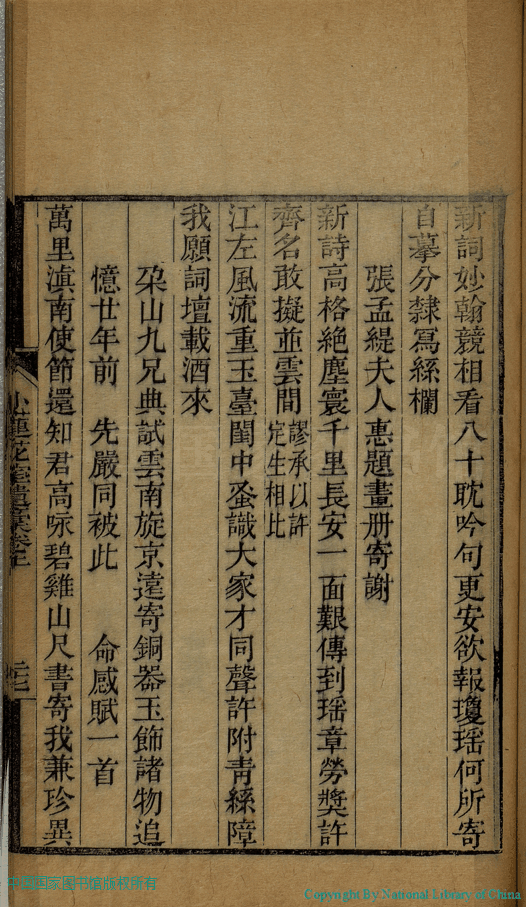 新詞妙翰競相看八十耽吟句更安欲報瓊瑶何所寄
自摹分隸寫絲欄
張孟緹夫人惠題畫册寄謝
新詩高格絶塵寰千里長安一面艱傳到瑶章勞奬許
齊名敢擬並雲間謬承以許定生相比
江左風流重玉臺閨中蚤識大家才同聲許附青絲障
我願詞壇載酒來
朶山九兄典試雲南旋京遠寄銅器玉飾諸物追
憶廿年前 先嚴同被此 命感賦一首
萬里滇南使節還知君高咏碧雞山尺書寄我兼珍異
小蓮花室遺稾卷上
中国国家图书馆版权所有
Copyright By National Library of China